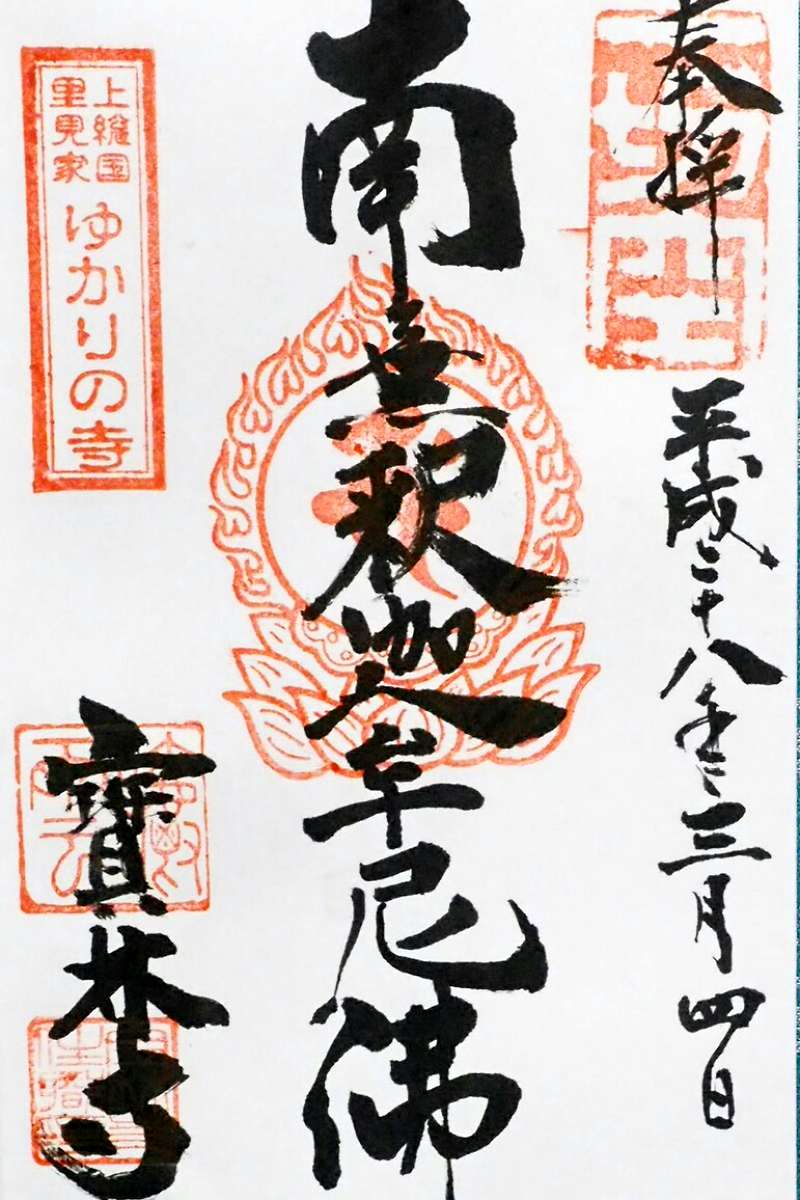 奉拜
平成二十八年三月四日
南無釈迦牟尼佛
上総国
里見家
ゆかりの寺
寳林寺